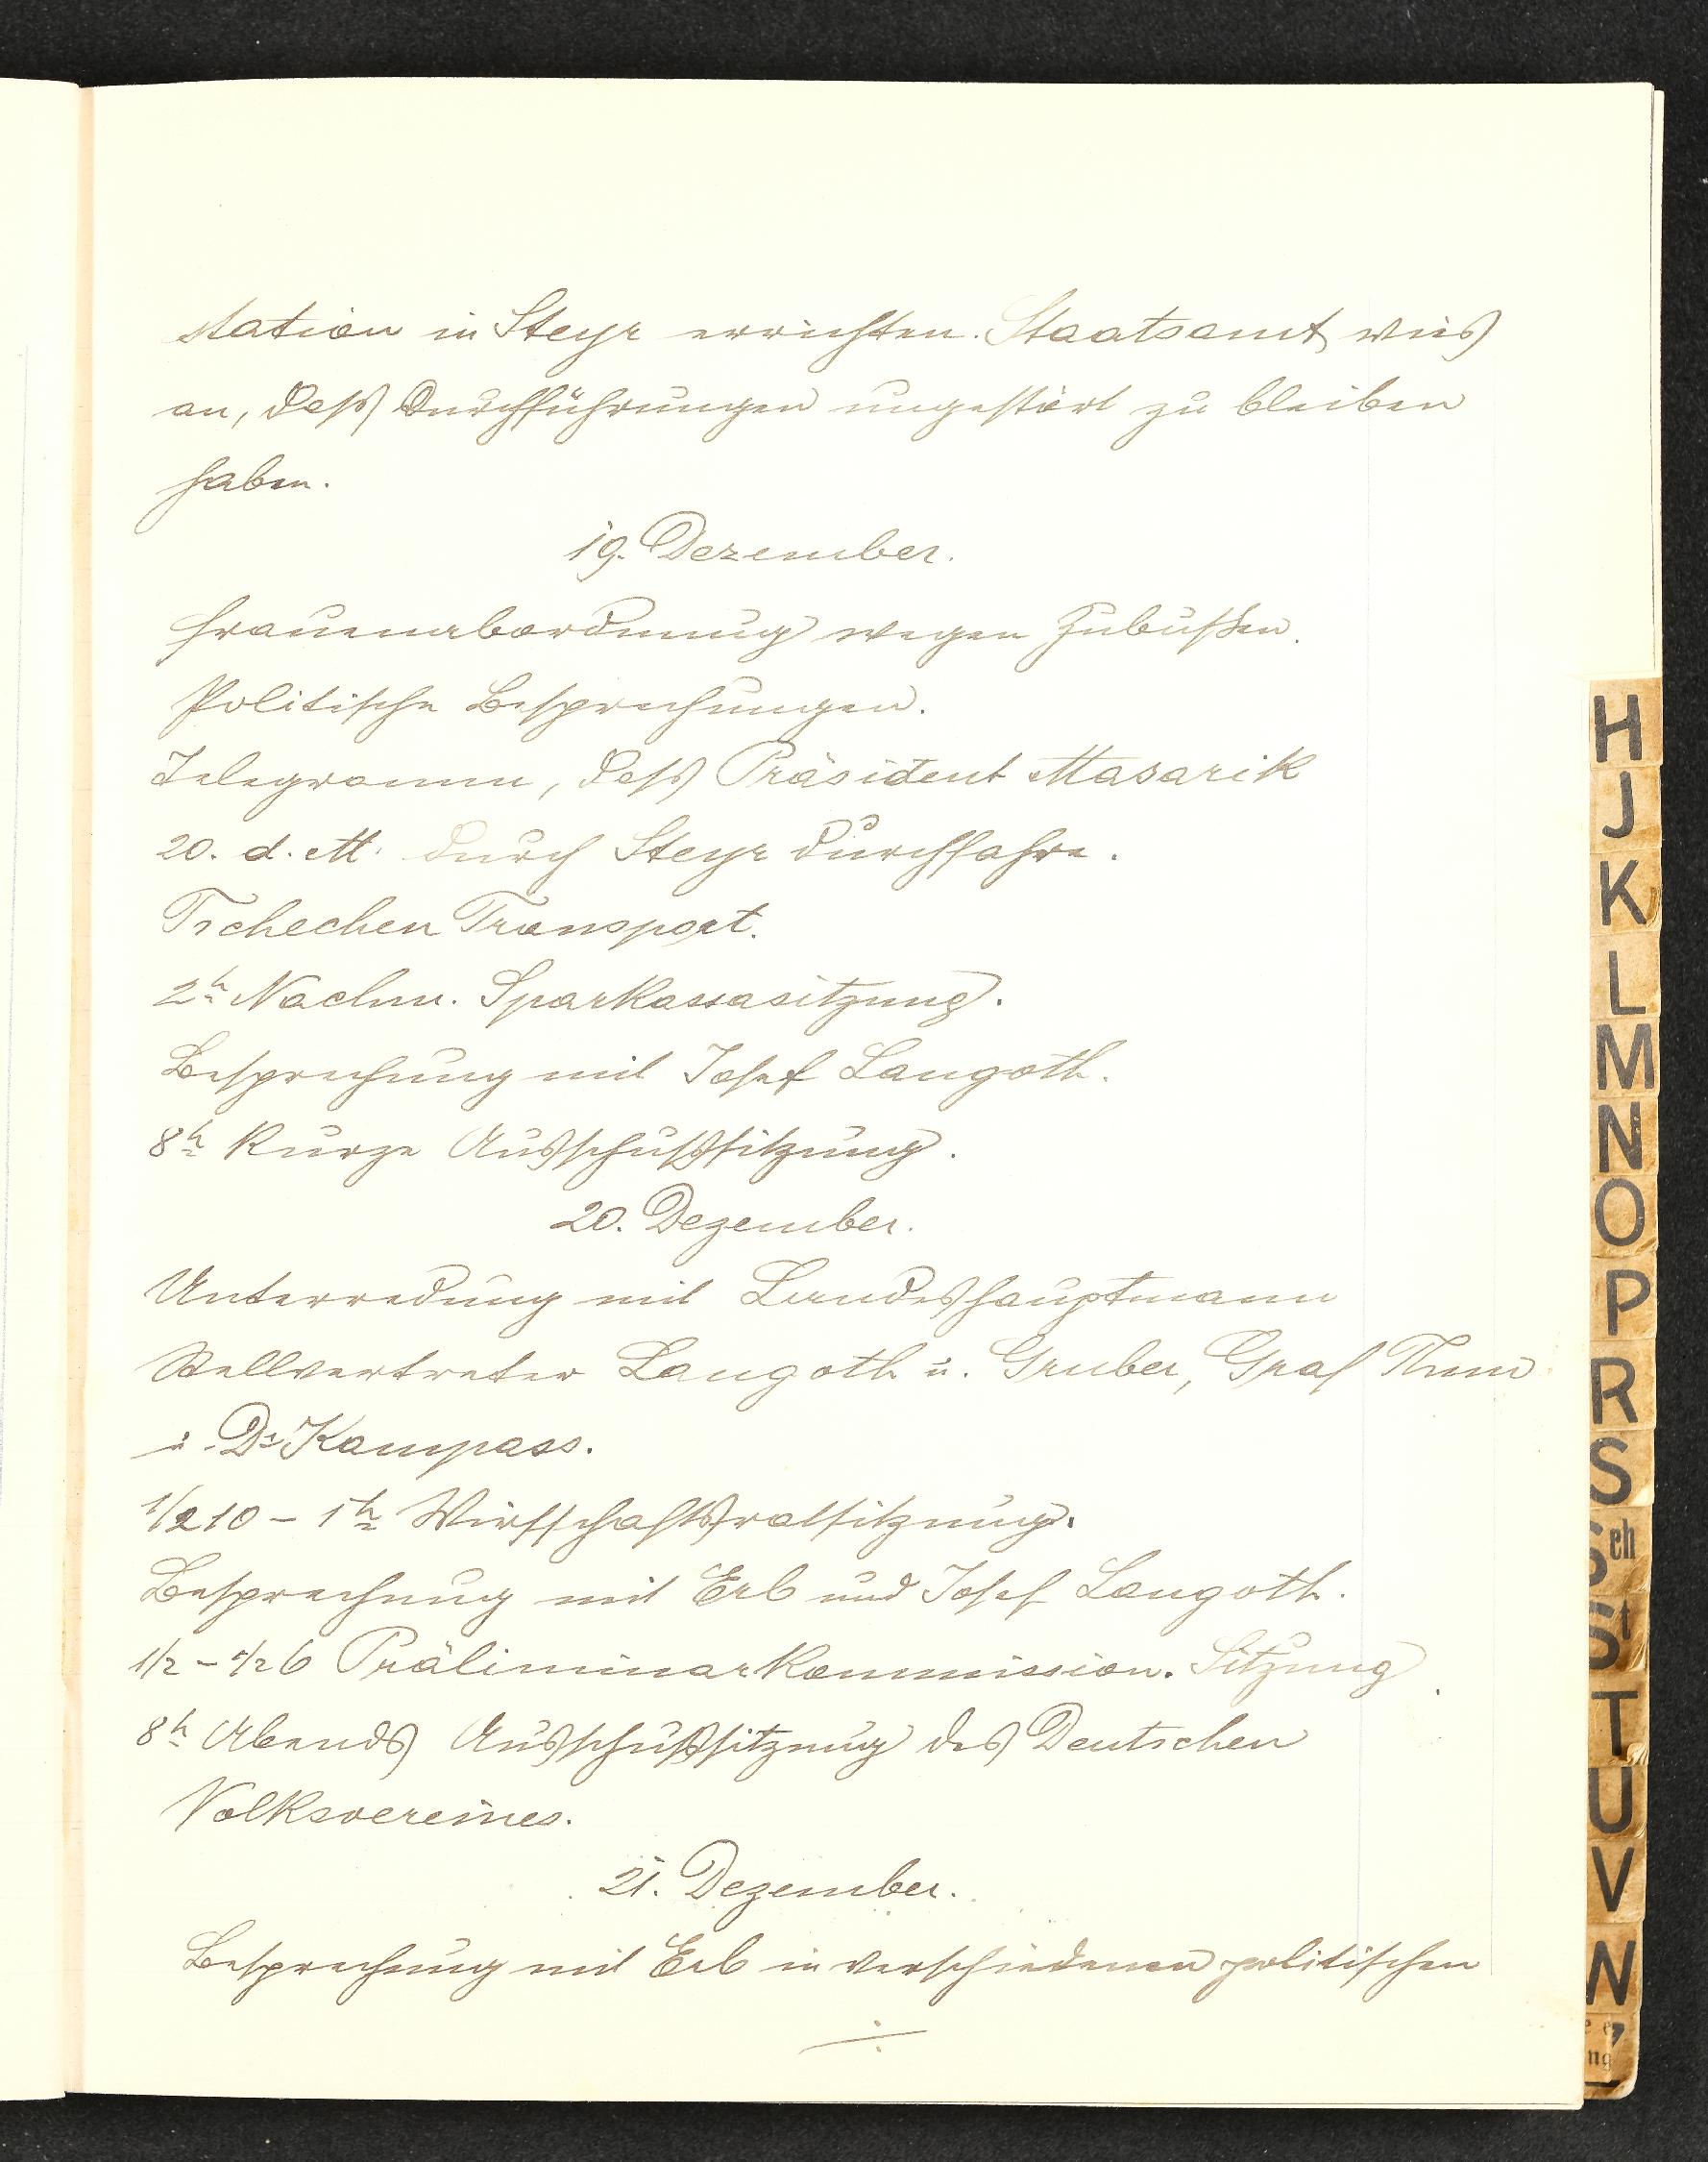 station in Steyr errichten. Staatsamt wies
an, dass Durchführungen ungestört zu bleiben
haben.
19. Dezember.
Frauenabordnung wegen Zubußen.
Politische Besprechungen.
Telegramm, dass Präsident Masarik
20. d. M. durch Steyr durchfahre.
Tschechen Transport.
2h Nachm. Sparkassasitzung.
Besprechung mit Josef Langoth.
8h Kurze Ausschußsitzung.
20. Dezember.
Unterredung mit Landeshauptmann
Stellvertreter Langoth u. Gruber, Graf Thun
u. Dr Kampass.
1/2 10 – 1h Wirtschaftsratsitzung.
Besprechung mit Erb und Josef Langoth.
1/2 – 1/2 6 Präliminarkommission. Sitzung.
8h Abends Ausschußsitzung des Deutschen
Volksvereines.
21. Dezember.
Besprechung mit Erb in verschiedenen politischen
H
J
K
L
M
N
O
P
R
S
Sch
St
T
U
V